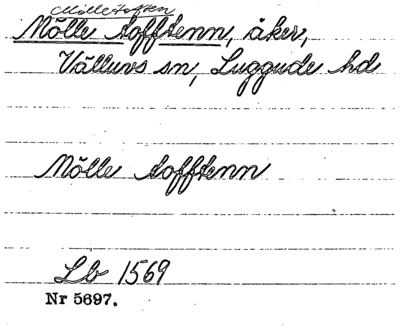 Mölletoften
Mölle tofftenn, åker,
Välluvs sn, Luggude hd
Mölle tofftenn
Lb 1569
Nr 5697.